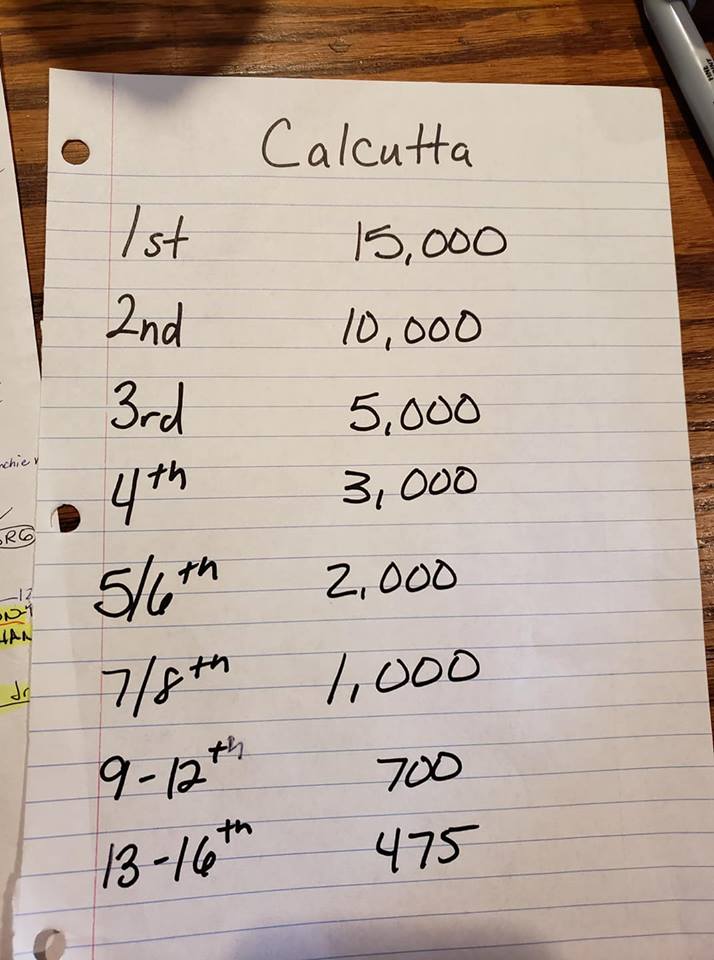 Calcutta
1st 15,000
2nd 10,000
3rd 5,000
4th 3,000
5/6th 2,000
7/8th 1,000
9-12th 700
13-16th 475